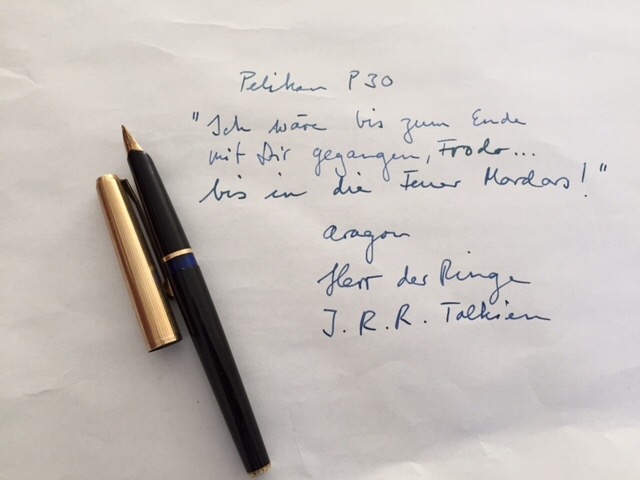 Pelikan P30
"Ich wäre bis zum Ende
mit Dir gegangen, Frodo...
bis in die Feuer Mordors!"
Aragon
Herr der Ringe
J. R. R. Tolkien